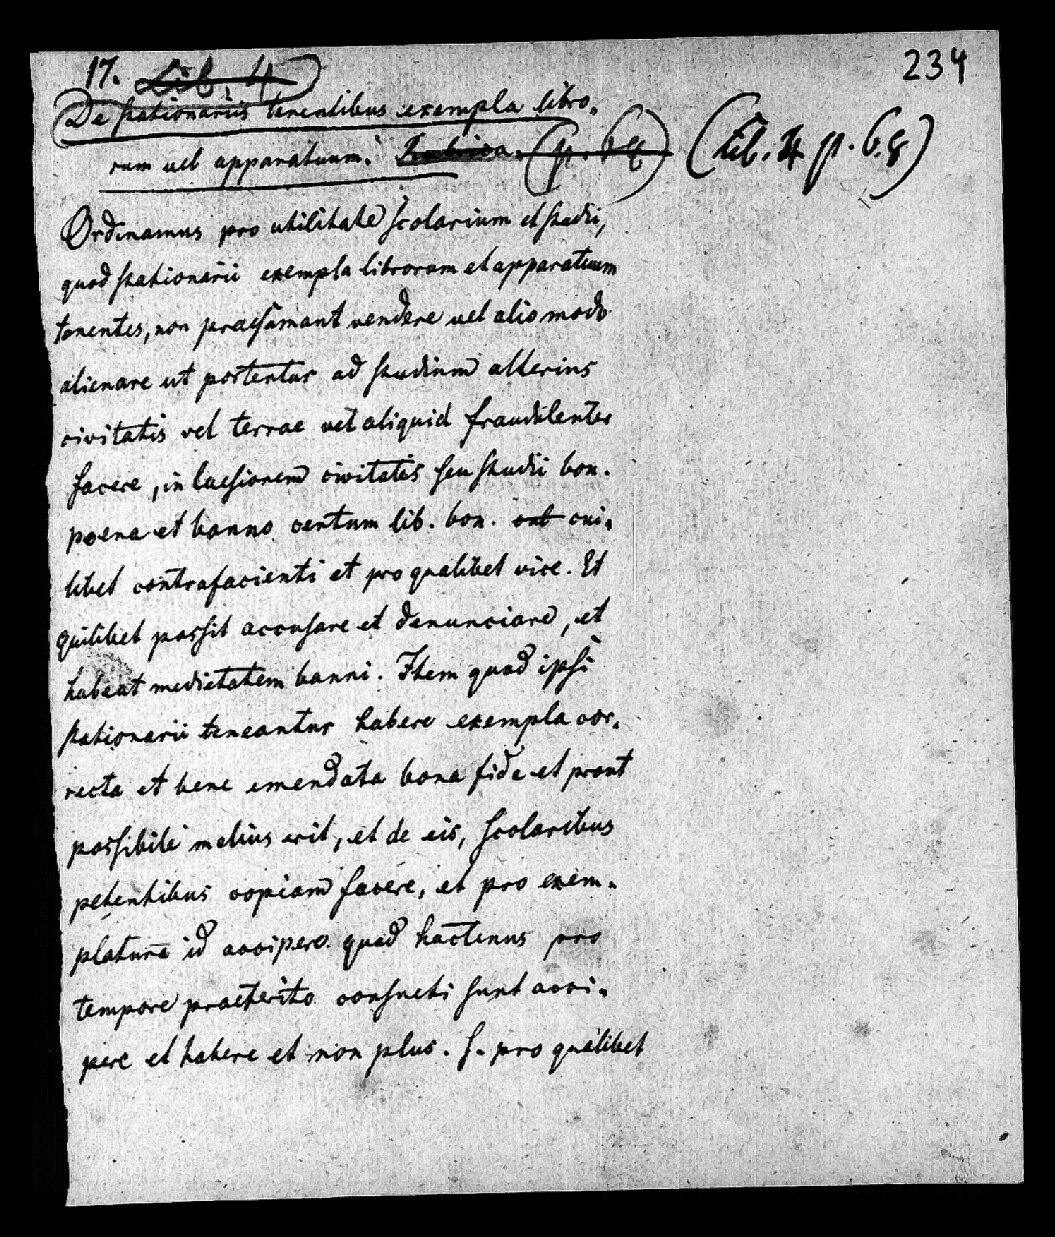 234
17. Lib. 4
De stationariis tenentibus exempla libro-
rum vel apparatuum. Rubrica. (p. 68) (Lib. 4 p. 68)
Ordinamus pro utilitate scolarium et studii,
quod stationarii exempla librorum et apparatuum
tenentes, non praesumant vendere vel alio modo
alienare ut portentur ad studium alterius
civitatis vel terrae vel aliquid fraudulenter
facere, in laesionem civitatis seu studii bon.
poena et banno centum lib. bon. cui-
libet contrafacienti et pro qualibet vice. Et
quilibet possit accusare et denunciare, et
habeat medietatem banni. Item quod ipsi
stationarii teneantur habere exempla cor-
recta et bene emendata bona fide et prout
possibile melius erit, et de eis, scolaribus
petentibus copiam facere, et pro exem-
platura id accipere quod hactenus pro
tempore praeterito consueti sunt acci-
pere et habere et non plus. s. pro qualibet